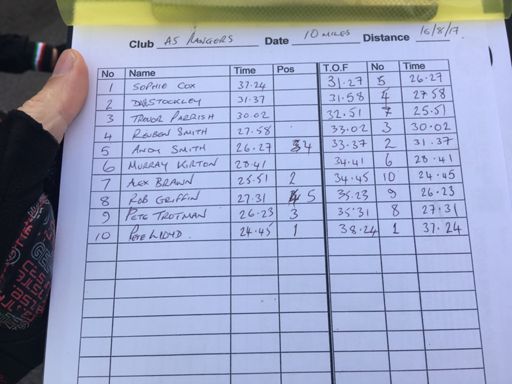 Club AS RANGERS Date 10 MILES Distance 16/8/17
No Name Time Pos T.O.F No Time
1 SOPHIE COX 37.24 31.27 5 26.27
2 STOCKLEY 31.37 31.58 4 27.58
3 TREVOR PARRISH 30.02 32.51 7 25.51
4 REUBEN SMITH 27.58 33.02 3 30.02
5 ANDY SMITH 26.27 4 33.37 2 31.37
6 MURRAY KIRTON 28.41 34.41 6 28.41
7 ALEX BRAWN 25.51 2 34.45 10 24.45
8 ROB GRIFFIN 27.31 5 35.23 9 26.23
9 PETE TROTMAN 26.23 3 35.31 8 27.31
10 PETE LLOYD. 24.45 1 38.24 1 37.24